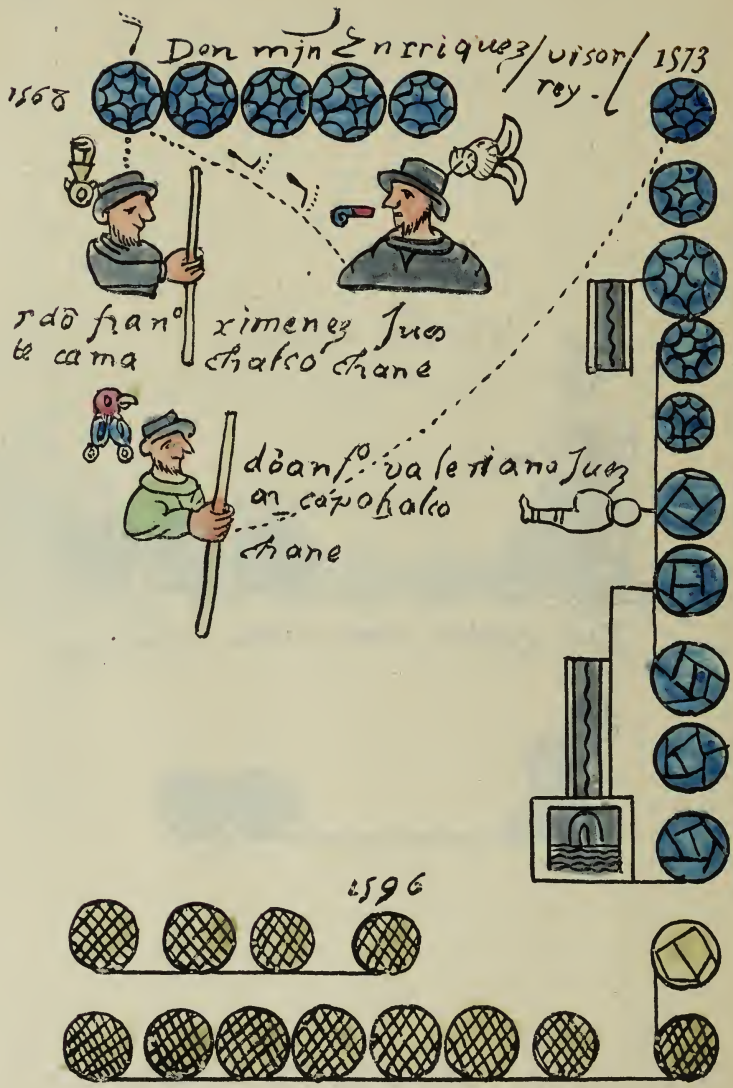 Don mjn Enrriquez/visor/ 1573
rey.
1568
rdō fran⁰ ximenez Juez
te cama chalco chane
dōanſ⁰ valeriano Juez
azcapohalco
chane
1596